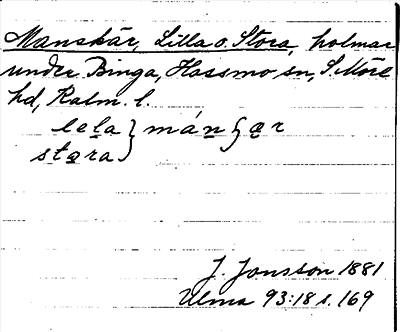 Manskär, Lilla o. Stora, holmar
under Binga, Hossmo sn, S. Möre
hd, Kalm. l.
lela } mán}ær
stora }
J. Jonsson 1881
Ulma 93:18 s. 169